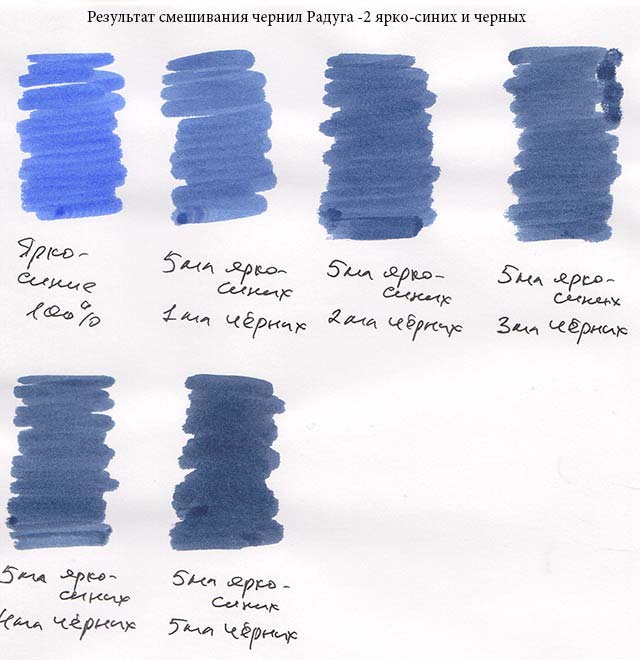 Результат смешивания чернил Радуга -2 ярко-синих и черных
Ярко-
синие
100%
5мл ярко-
синих
1мл чёрных
5мл ярко-
синих
2мл чёрных
5мл ярко-
синих
3мл чёрных
5мл ярко-
синих
4мл чёрных
5мл ярко-
синих
5мл чёрных